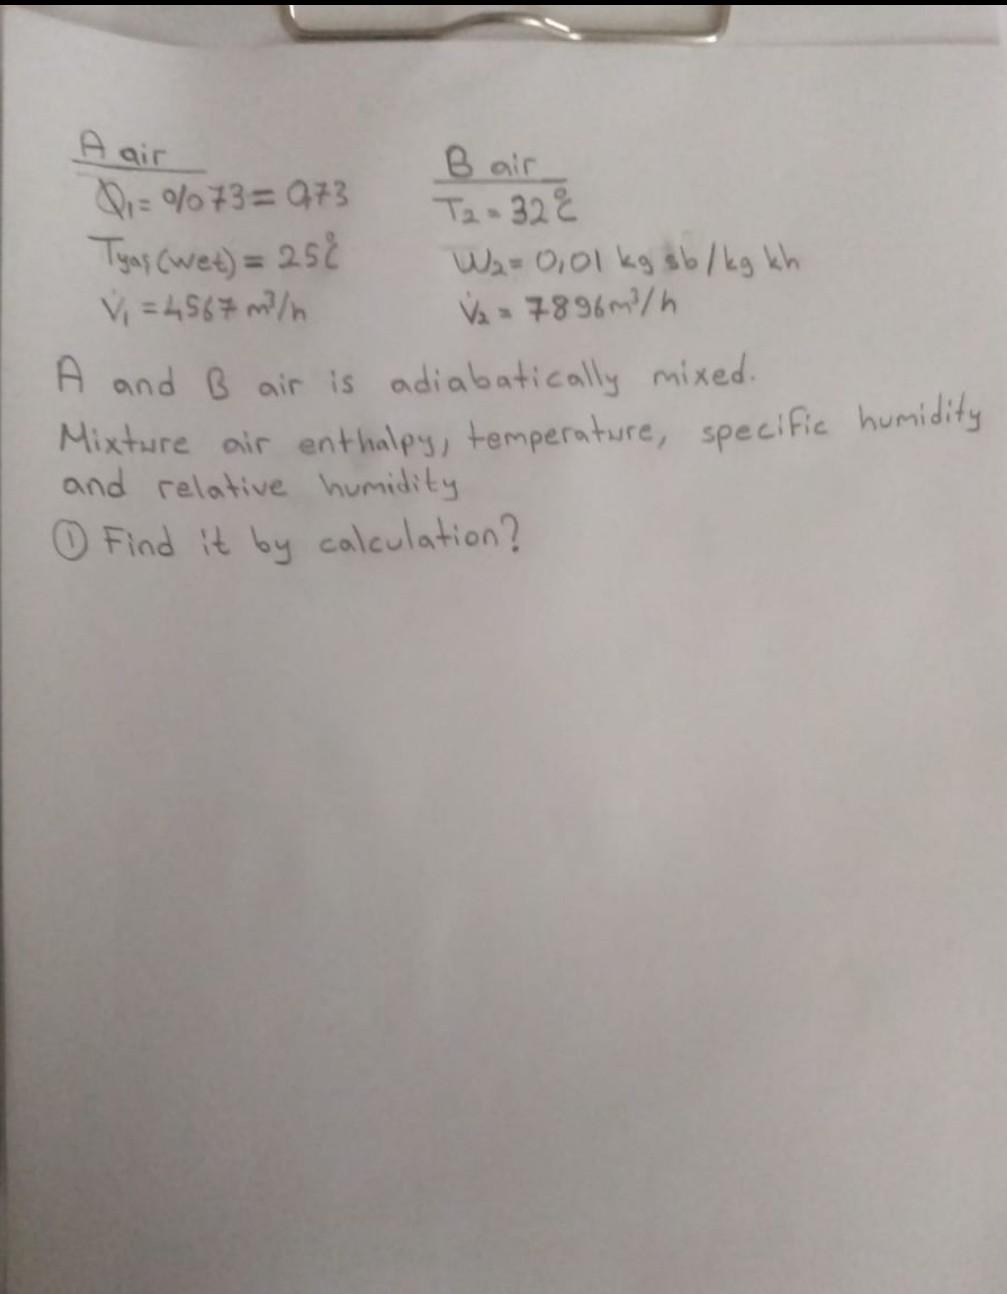 A air
Q₁ = %73 = 0,73
Tyaş (wet) = 25°C
V̇₁ = 4567 m³/h
B air
T₂ = 32°C
W₂ = 0,01 kg sb/kg kh
V̇₂ = 7896 m³/h
A and B air is adiabatically mixed.
Mixture air enthalpy, temperature, specific humidity
and relative humidity
① Find it by calculation?